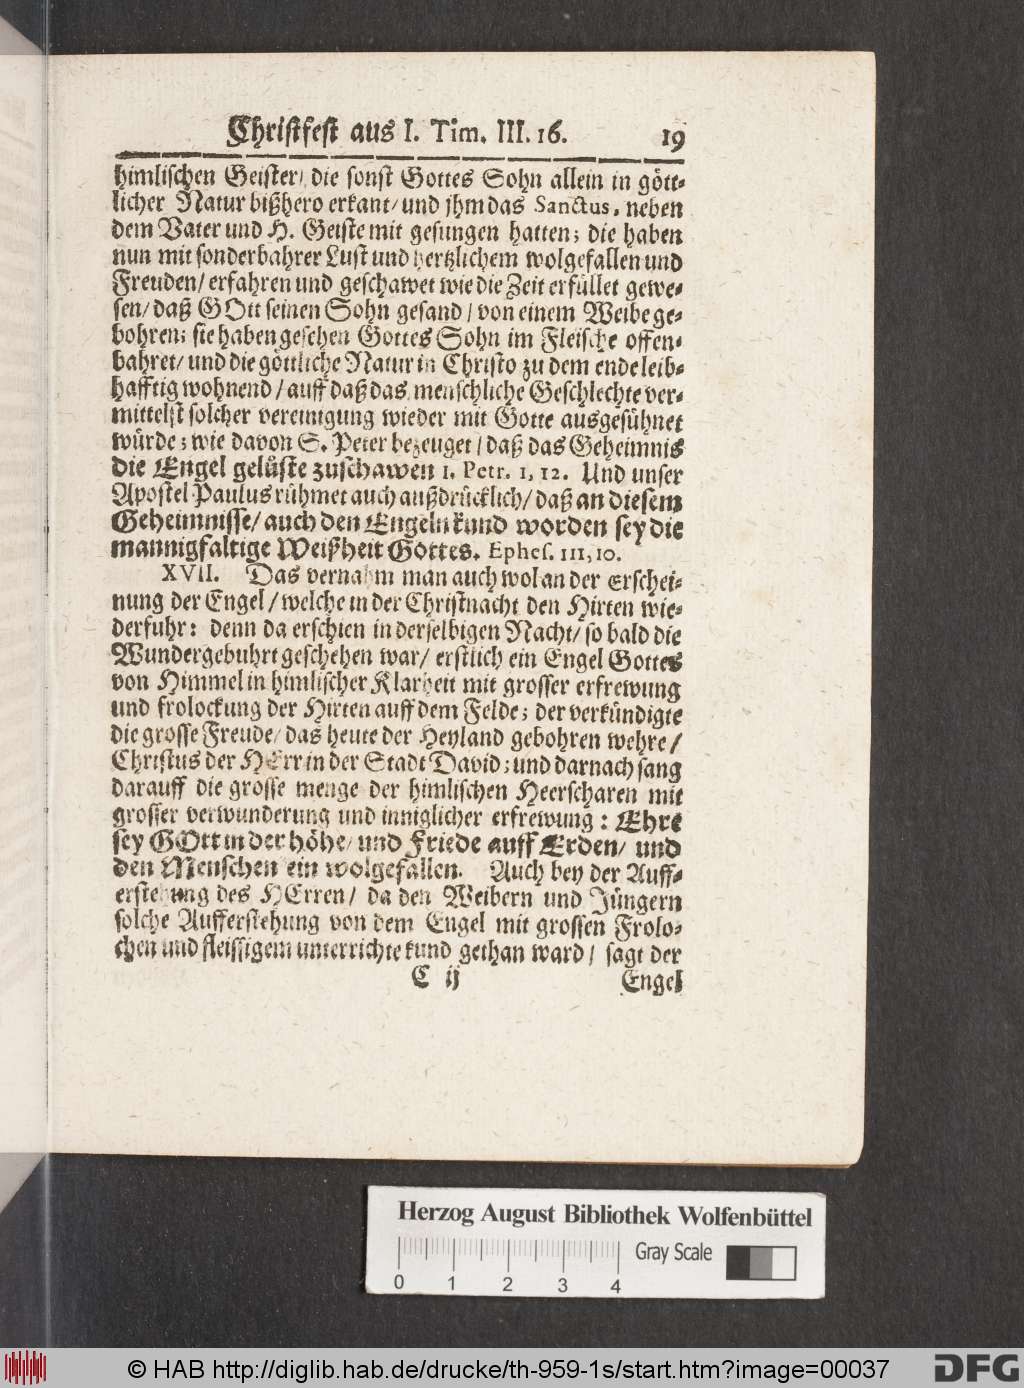 Christfest aus I. Tim. III. 16. 19
himlischen Geister/ die sonst Gottes Sohn allein in gött-
licher Natur bißhero erkant/ und jhm das Sanctus, neben
dem Vater und H. Geiste mit gesungen hatten; die haben
nun mit sonderbahrer Lust und hertzlichem wolgefallen und
Freuden/ erfahren und geschawet wie die Zeit erfüllet gewe-
sen/ daß GOtt seinen Sohn gesand/ von einem Weibe ge-
bohren; sie haben gesehen Gottes Sohn im Fleische offen-
bahret/ und die göttliche Natur in Christo zu dem ende leib-
hafftig wohnend/ auff daß das menschliche Geschlechte ver-
mittelst solcher vereinigung wieder mit Gotte ausgesühnet
würde; wie davon S. Peter bezeuget/ daß das Geheimnis
die Engel gelüste zuschawen 1. Petr. 1, 12. Und unser
Apostel Paulus rühmet auch außdrücklich/ daß an diesem
Geheimnisse/ auch den Engeln kund worden sey die
mannigfaltige Weißheit Gottes. Ephes. III, 10.
XVII. Das vernahm man auch wol an der Erschei-
nung der Engel/ welche in der Christnacht den Hirten wie-
derfuhr: denn da erschien in derselbigen Nacht/ so bald die
Wundergebuhrt geschehen war/ erstlich ein Engel Gottes
von Himmel in himlischer Klarheit mit grosser erfrewung
und frolockung der Hirten auff dem Felde; der verkündigte
die grosse Freude/ das heute der Heyland gebohren wehre/
Christus der HErr in der Stadt David; und darnach sang
darauff die grosse menge der himlischen Heerscharen mit
grosser verwunderung und inniglicher erfrewung: Ehre
sey GOtt in der höhe/ und Friede auff Erden/ und
den Menschen ein wolgefallen. Auch bey der Auff-
erstehung des HErren/ da den Weibern und Jüngern
solche Aufferstehung von dem Engel mit grossen Frolo-
cken und fleissigem unterrichte kund gethan ward/ sagt der
C ij Engel
Herzog August Bibliothek Wolfenbüttel
Gray Scale
0 1 2 3 4
© HAB http://diglib.hab.de/drucke/th-959-1s/start.htm?image=00037 DFG